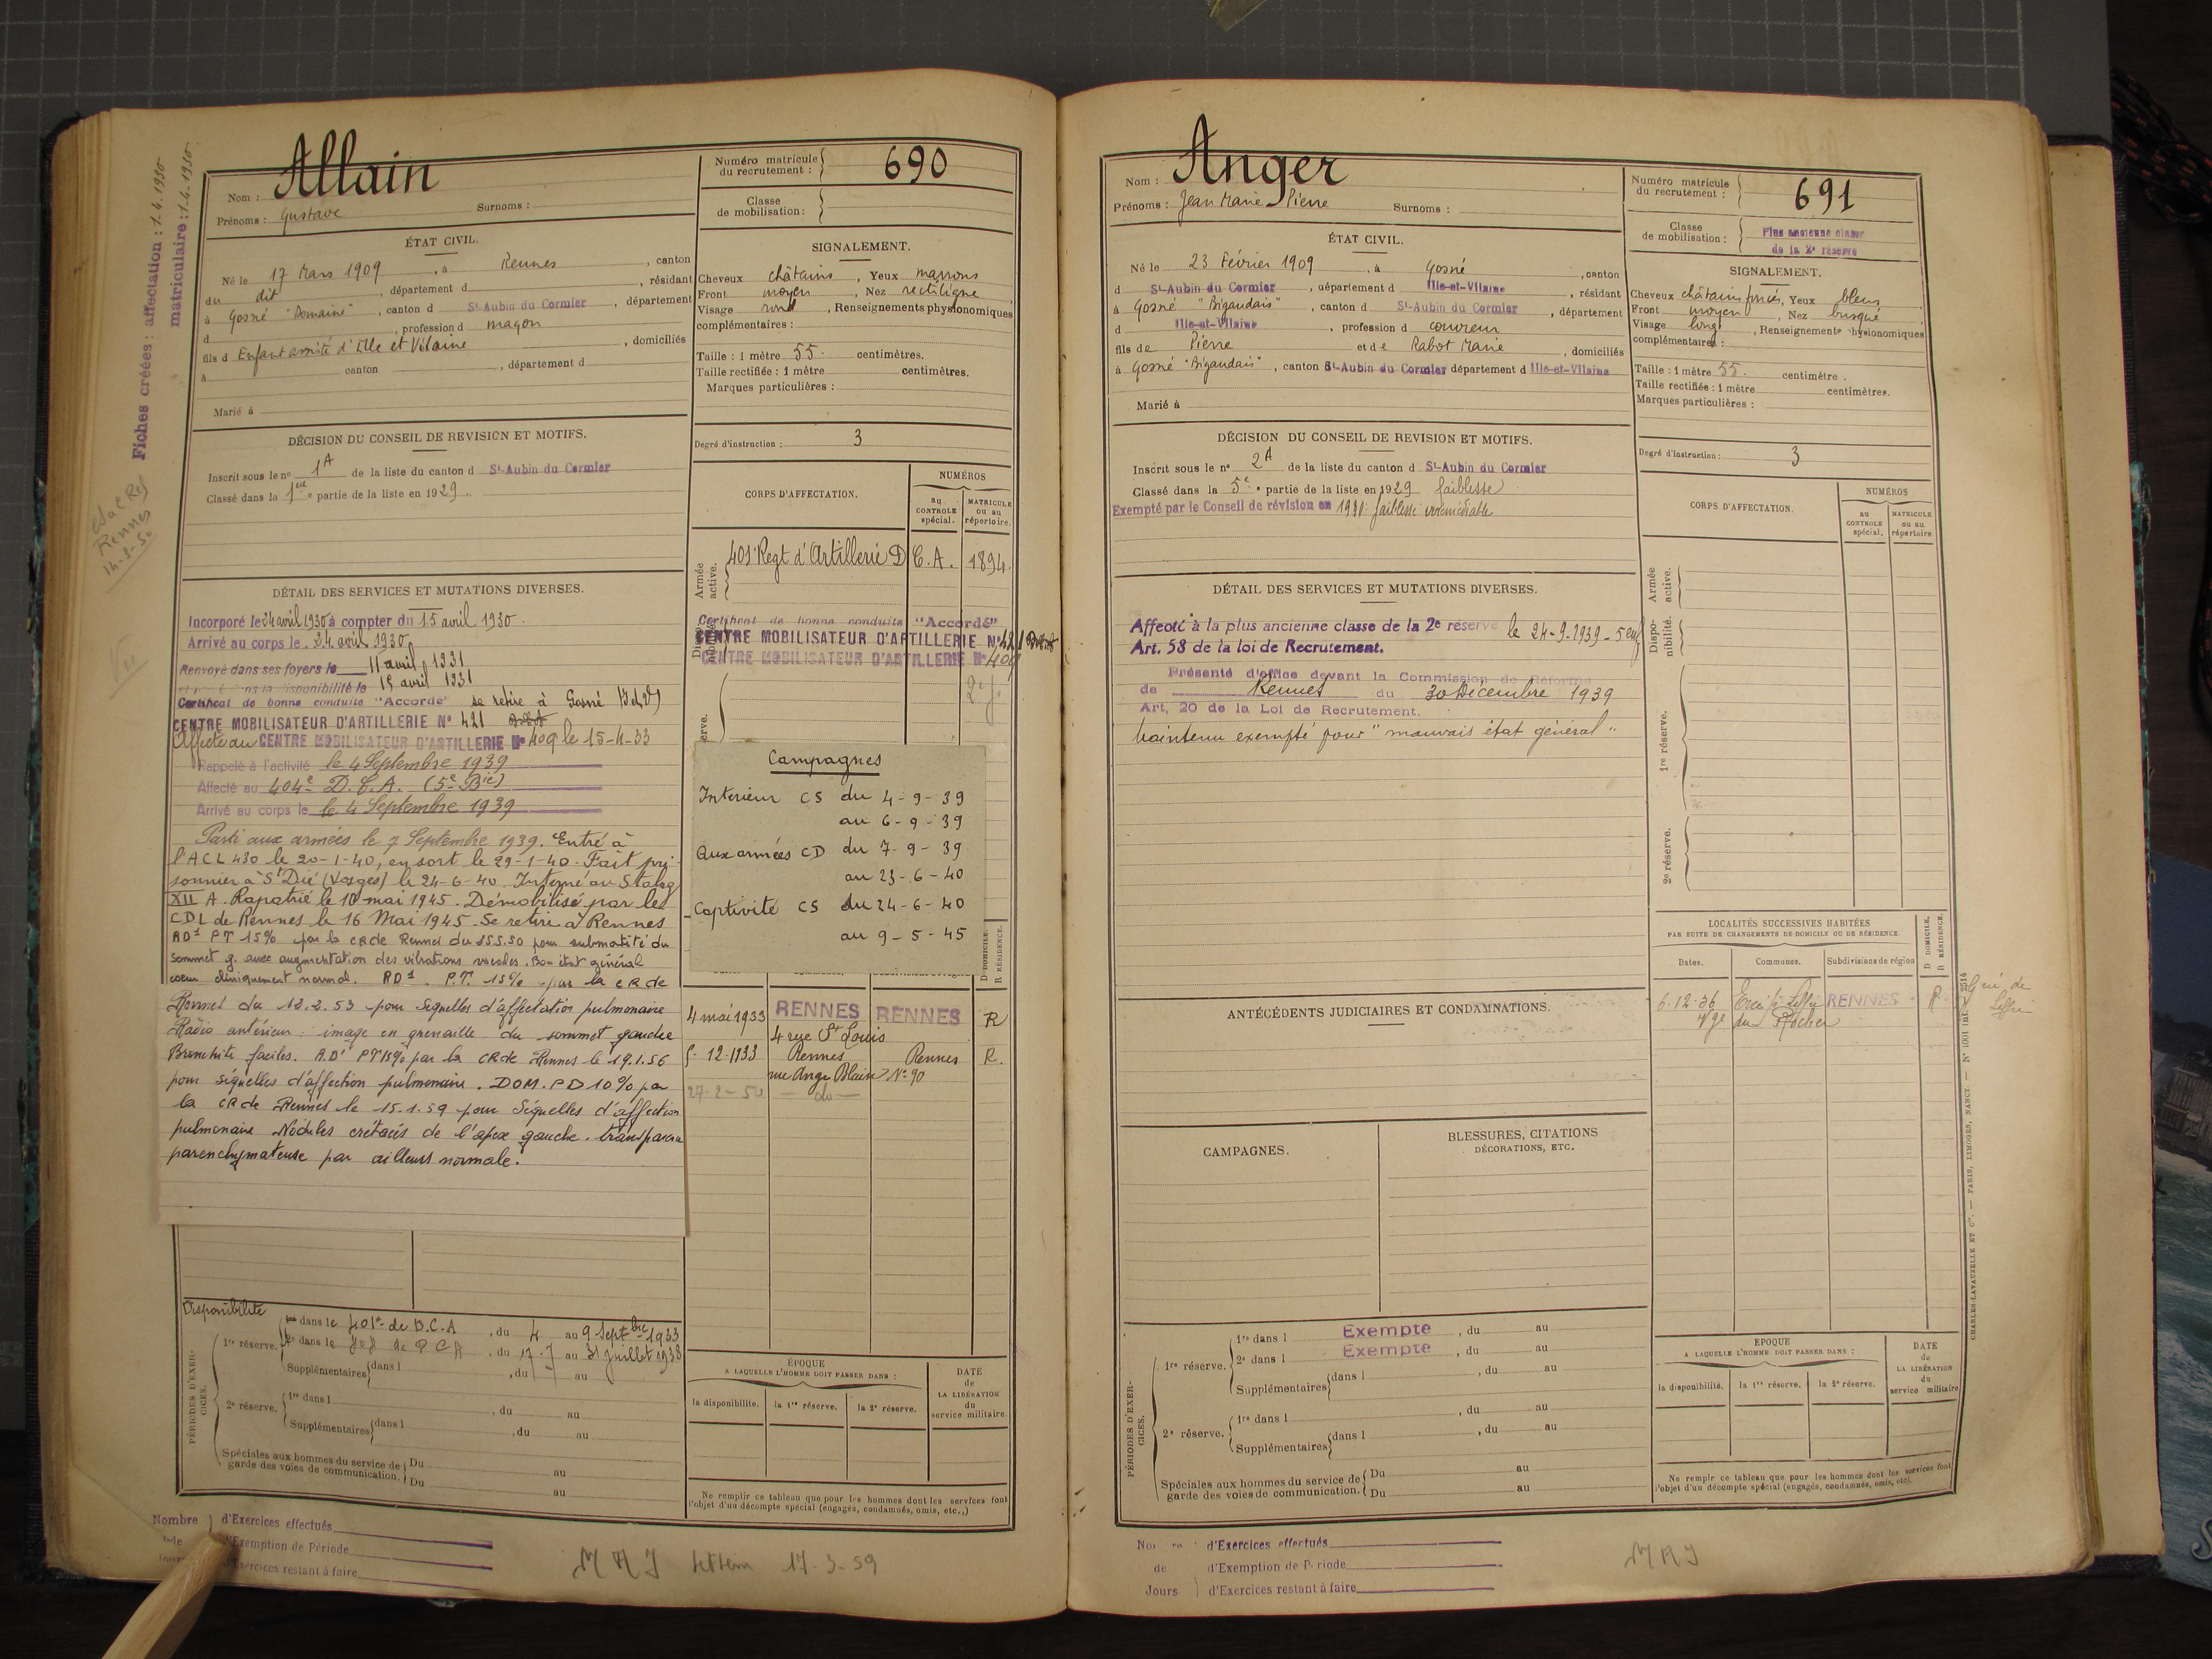 Fiches créées : affectation : 1.4.1930
matriculaire : 1.4.1930
Rennes
14-3-50
Vu
Nom : Allain
Prénoms : Gustave Surnoms :
Numéro matricule du recrutement : 690
Classe de mobilisation :
ÉTAT CIVIL.
Né le 17 Mars 1909, à Rennes, canton
du dit, département d, résidant
à Gosné "Domaine", canton d St-Aubin du Cormier, département
d, profession d maçon
fils d Enfant assisté d'Ille et Vilaine, domiciliés
à canton, département d
Marié à
SIGNALEMENT.
Cheveux châtains, Yeux marrons
Front moyen, Nez rectiligne
Visage rond, Renseignements physionomiques
complémentaires :
Taille : 1 mètre 55 centimètres.
Taille rectifiée : 1 mètre centimètres.
Marques particulières :
Degré d'instruction : 3
DÉCISION DU CONSEIL DE REVISION ET MOTIFS.
Inscrit sous le n° 1A de la liste du canton d St-Aubin du Cormier
Classé dans la 1ère partie de la liste en 1929.
CORPS D'AFFECTATION.
NUMÉROS
au CONTROLE spécial.
MATRICULE ou au répertoire.
Armée active.
401e Regt d'Artillerie D.C.A. 1894.
Certificat de bonne conduite "Accordé"
CENTRE MOBILISATEUR D'ARTILLERIE N° 421
CENTRE MOBILISATEUR D'ARTILLERIE N° 409
DÉTAIL DES SERVICES ET MUTATIONS DIVERSES.
Incorporé le 24 avril 1930 à compter du 15 avril 1930.
Arrivé au corps le 24 avril 1930
Renvoyé dans ses foyers le 11 avril 1931
la disponibilité le 15 avril 1931
Certificat de bonne conduite "Accordé" se retire à Gosné (I et V)
CENTRE MOBILISATEUR D'ARTILLERIE N° 421
Affecté au CENTRE MOBILISATEUR D'ARTILLERIE N° 409 le 15-4-33
Rappelé à l'activité le 4 Septembre 1939
Affecté au 404e D.C.A. (5e Bie)
Arrivé au corps le le 4 Septembre 1939
Parti aux armées le 7 Septembre 1939. Entré à
l'ACL 430 le 20-1-40, en sort le 29-1-40. Fait pri-
sonnier à St Dié (Vosges) le 24-6-40. Interné au Stalag
XII A. Rapatrié le 10 mai 1945. Démobilisé par le
CDL de Rennes le 16 Mai 1945. Se retire à Rennes
RD1 PT 15% par la CR de Rennes du 15.5.50 pour submatité du
sommet g. avec augmentation des vibrations vocales. Bon état général
coeur cliniquement normal. RD1. P.T. 15% par la CR de
Rennes du 12.2.53 pour séquelles d'affectation pulmonaire
Radio antérieur : image en grenaille du sommet gauche
Bronchite faciles. RD1 PT 15% par la CR de Rennes le 19.1.56
pour séquelles d'affection pulmonaire. DOM. PD 10% par
la CR de Rennes le 15.1.59 pour Séquelles d'affection
pulmonaire Nodules crétacés de l'apex gauche. transparence
parenchymateuse par ailleurs normale.
Campagnes
Interieur CS du 4-9-39
au 6-9-39
Aux armées CD du 7-9-39
au 23-6-40
Captivité CS du 24-6-40
au 9-5-45
D DOMICILE.
R RÉSIDENCE.
4 mai 1933 RENNES RENNES R
4 rue St Louis
5-12-1933 Rennes Rennes R.
rue Ange Blaize N° 90
27-2-50 — do —
PÉRIODES D'EXERCICES.
Disponibilité
1re réserve. dans le 401e de D.C.A, du 4 au 9 Septbre 1933
2e dans le de D C A, du 17-7 au 31 juillet 1938
Supplémentaires dans l, du au
2e réserve. 1re dans l, du au
Supplémentaires dans l, du au
Spéciales aux hommes du service de garde des voies de communication. Du au
Du au
ÉPOQUE
A LAQUELLE L'HOMME DOIT PASSER DANS :
la disponibilité. la 1re réserve. la 2e réserve.
DATE de LA LIBÉRATION du service militaire.
Ne remplir ce tableau que pour les hommes dont les services font
l'objet d'un décompte spécial (engagés, condamnés, omis, etc.,)
Nombre de Jours
d'Exercices effectués
d'Exemption de Période
d'Exercices restant à faire
17-3-59
Nom : Anger
Prénoms : Jean Marie Pierre Surnoms :
Numéro matricule du recrutement : 691
Classe de mobilisation : Plus ancienne classe
de la 2e réserve
ÉTAT CIVIL.
Né le 23 Février 1909, à Gosné, canton
d St-Aubin du Cormier, département d Ille-et-Vilaine, résidant
à Gosné "Bigaudais", canton d St-Aubin du Cormier, département
d Ille-et-Vilaine, profession d couvreur
fils de Pierre et de Rabot Marie, domiciliés
à Gosné "Bigaudais", canton St-Aubin du Cormier département d Ille-et-Vilaine
Marié à
SIGNALEMENT.
Cheveux châtain foncés, Yeux bleus
Front moyen, Nez busqué
Visage long, Renseignements physionomiques
complémentaires :
Taille : 1 mètre 55 centimètre.
Taille rectifiée : 1 mètre centimètres.
Marques particulières :
Degré d'instruction : 3
DÉCISION DU CONSEIL DE REVISION ET MOTIFS.
Inscrit sous le n° 2A de la liste du canton d St-Aubin du Cormier
Classé dans la 5e partie de la liste en 1929 faiblesse
Exempté par le Conseil de révision en 1930: faiblesse irrémédiable
CORPS D'AFFECTATION.
NUMÉROS
au CONTROLE spécial.
MATRICULE ou au répertoire.
Armée active.
Disponibilité.
1re réserve.
2e réserve.
DÉTAIL DES SERVICES ET MUTATIONS DIVERSES.
Affecté à la plus ancienne classe de la 2e réserve le 24-9-1939
Art. 58 de la loi de Recrutement.
Présenté d'office devant la Commission de Réforme
de Rennes du 30 Décembre 1939
Art. 20 de la Loi de Recrutement.
Maintenu exempté pour "mauvais état général"
ANTÉCÉDENTS JUDICIAIRES ET CONDAMNATIONS.
LOCALITÉS SUCCESSIVES HABITÉES
PAR SUITE DE CHANGEMENTS DE DOMICILE OU DE RÉSIDENCE.
Dates. Communes. Subdivisions de région
D DOMICILE.
R RÉSIDENCE.
6-12-36 Liffré RENNES R
du Rocher
CAMPAGNES.
BLESSURES, CITATIONS
DÉCORATIONS, ETC.
PÉRIODES D'EXERCICES.
1re réserve. 1re dans l Exempté, du au
2e dans l Exempté, du au
Supplémentaires dans l, du au
2e réserve. 1re dans l, du au
Supplémentaires dans l, du au
Spéciales aux hommes du service de garde des voies de communication. Du au
Du au
EPOQUE
A LAQUELLE L'HOMME DOIT PASSER DANS :
la disponibilité. la 1re réserve. la 2e réserve.
DATE de LA LIBÉRATION du service militaire
Ne remplir ce tableau que pour les hommes dont les services font
l'objet d'un décompte spécial (engagés, condamnés, omis, etc).
de Jours
d'Exercices effectués
d'Exemption de Période
d'Exercices restant à faire
CHARLES-LAVAUZELLE ET Cie. — PARIS, LIMOGES, NANCY.